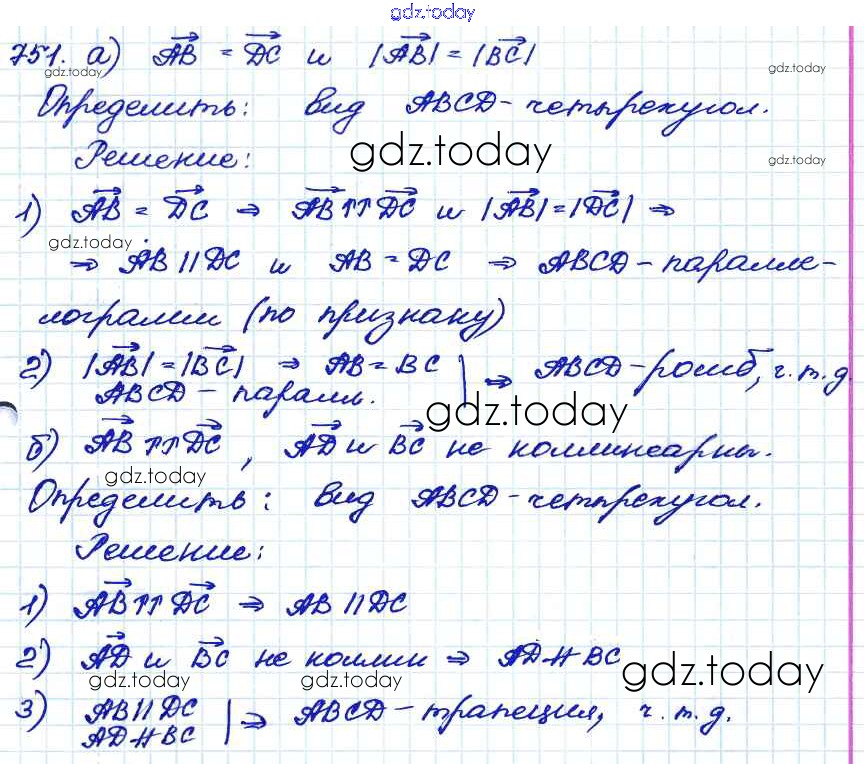 gdz.today
751. а) AB = DC и |AB| = |BC|
gdz.today gdz.today
Определить: вид ABCD-четырехугол.
Решение: gdz.today gdz.today
1) AB = DC ⇒ AB↑↑DC и |AB|=|DC| ⇒
gdz.today
⇒ AB || DC и AB = DC ⇒ ABCD - паралле-
лограмм (по признаку)
2) |AB| = |BC| ⇒ AB = BC | ⇒ ABCD - ромб, ч.т.д.
ABCD - паралл.
gdz.today
б) AB↑↑DC, AD и BC не коллинеарны.
gdz.today
Определить: вид ABCD-четырехугол.
Решение:
1) AB↑↑DC ⇒ AB || DC
2) AD и BC не коллин ⇒ AD ∦ BC
gdz.today gdz.today gdz.today
3) AB || DC | ⇒ ABCD - трапеция, ч.т.д.
AD ∦ BC